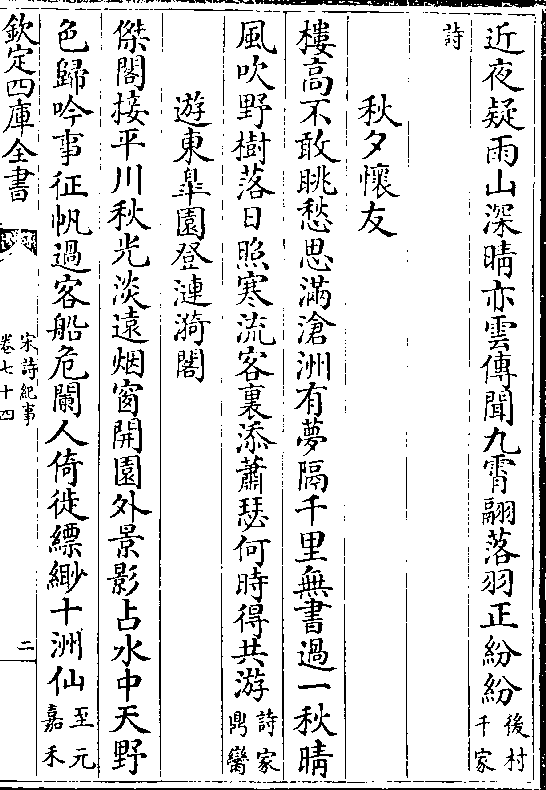 近夜疑雨山深晴亦雲傳聞九霄翮落羽正紛紛後村千家
詩
秋夕懷友
樓高不敢眺愁思滿滄洲有夢隔千里無書過一秋晴
風吹野樹落日照寒流客裏添蕭瑟何時得共游詩家鼎臠
遊東臯園登漣漪閣
傑閣接平川秋光淡遠烟窗開園外景影占水中天野
色歸吟事征帆過客船危闌人倚徙縹緲十洲仙至元嘉禾
欽定四庫全書
宋詩紀事
卷七十四
二